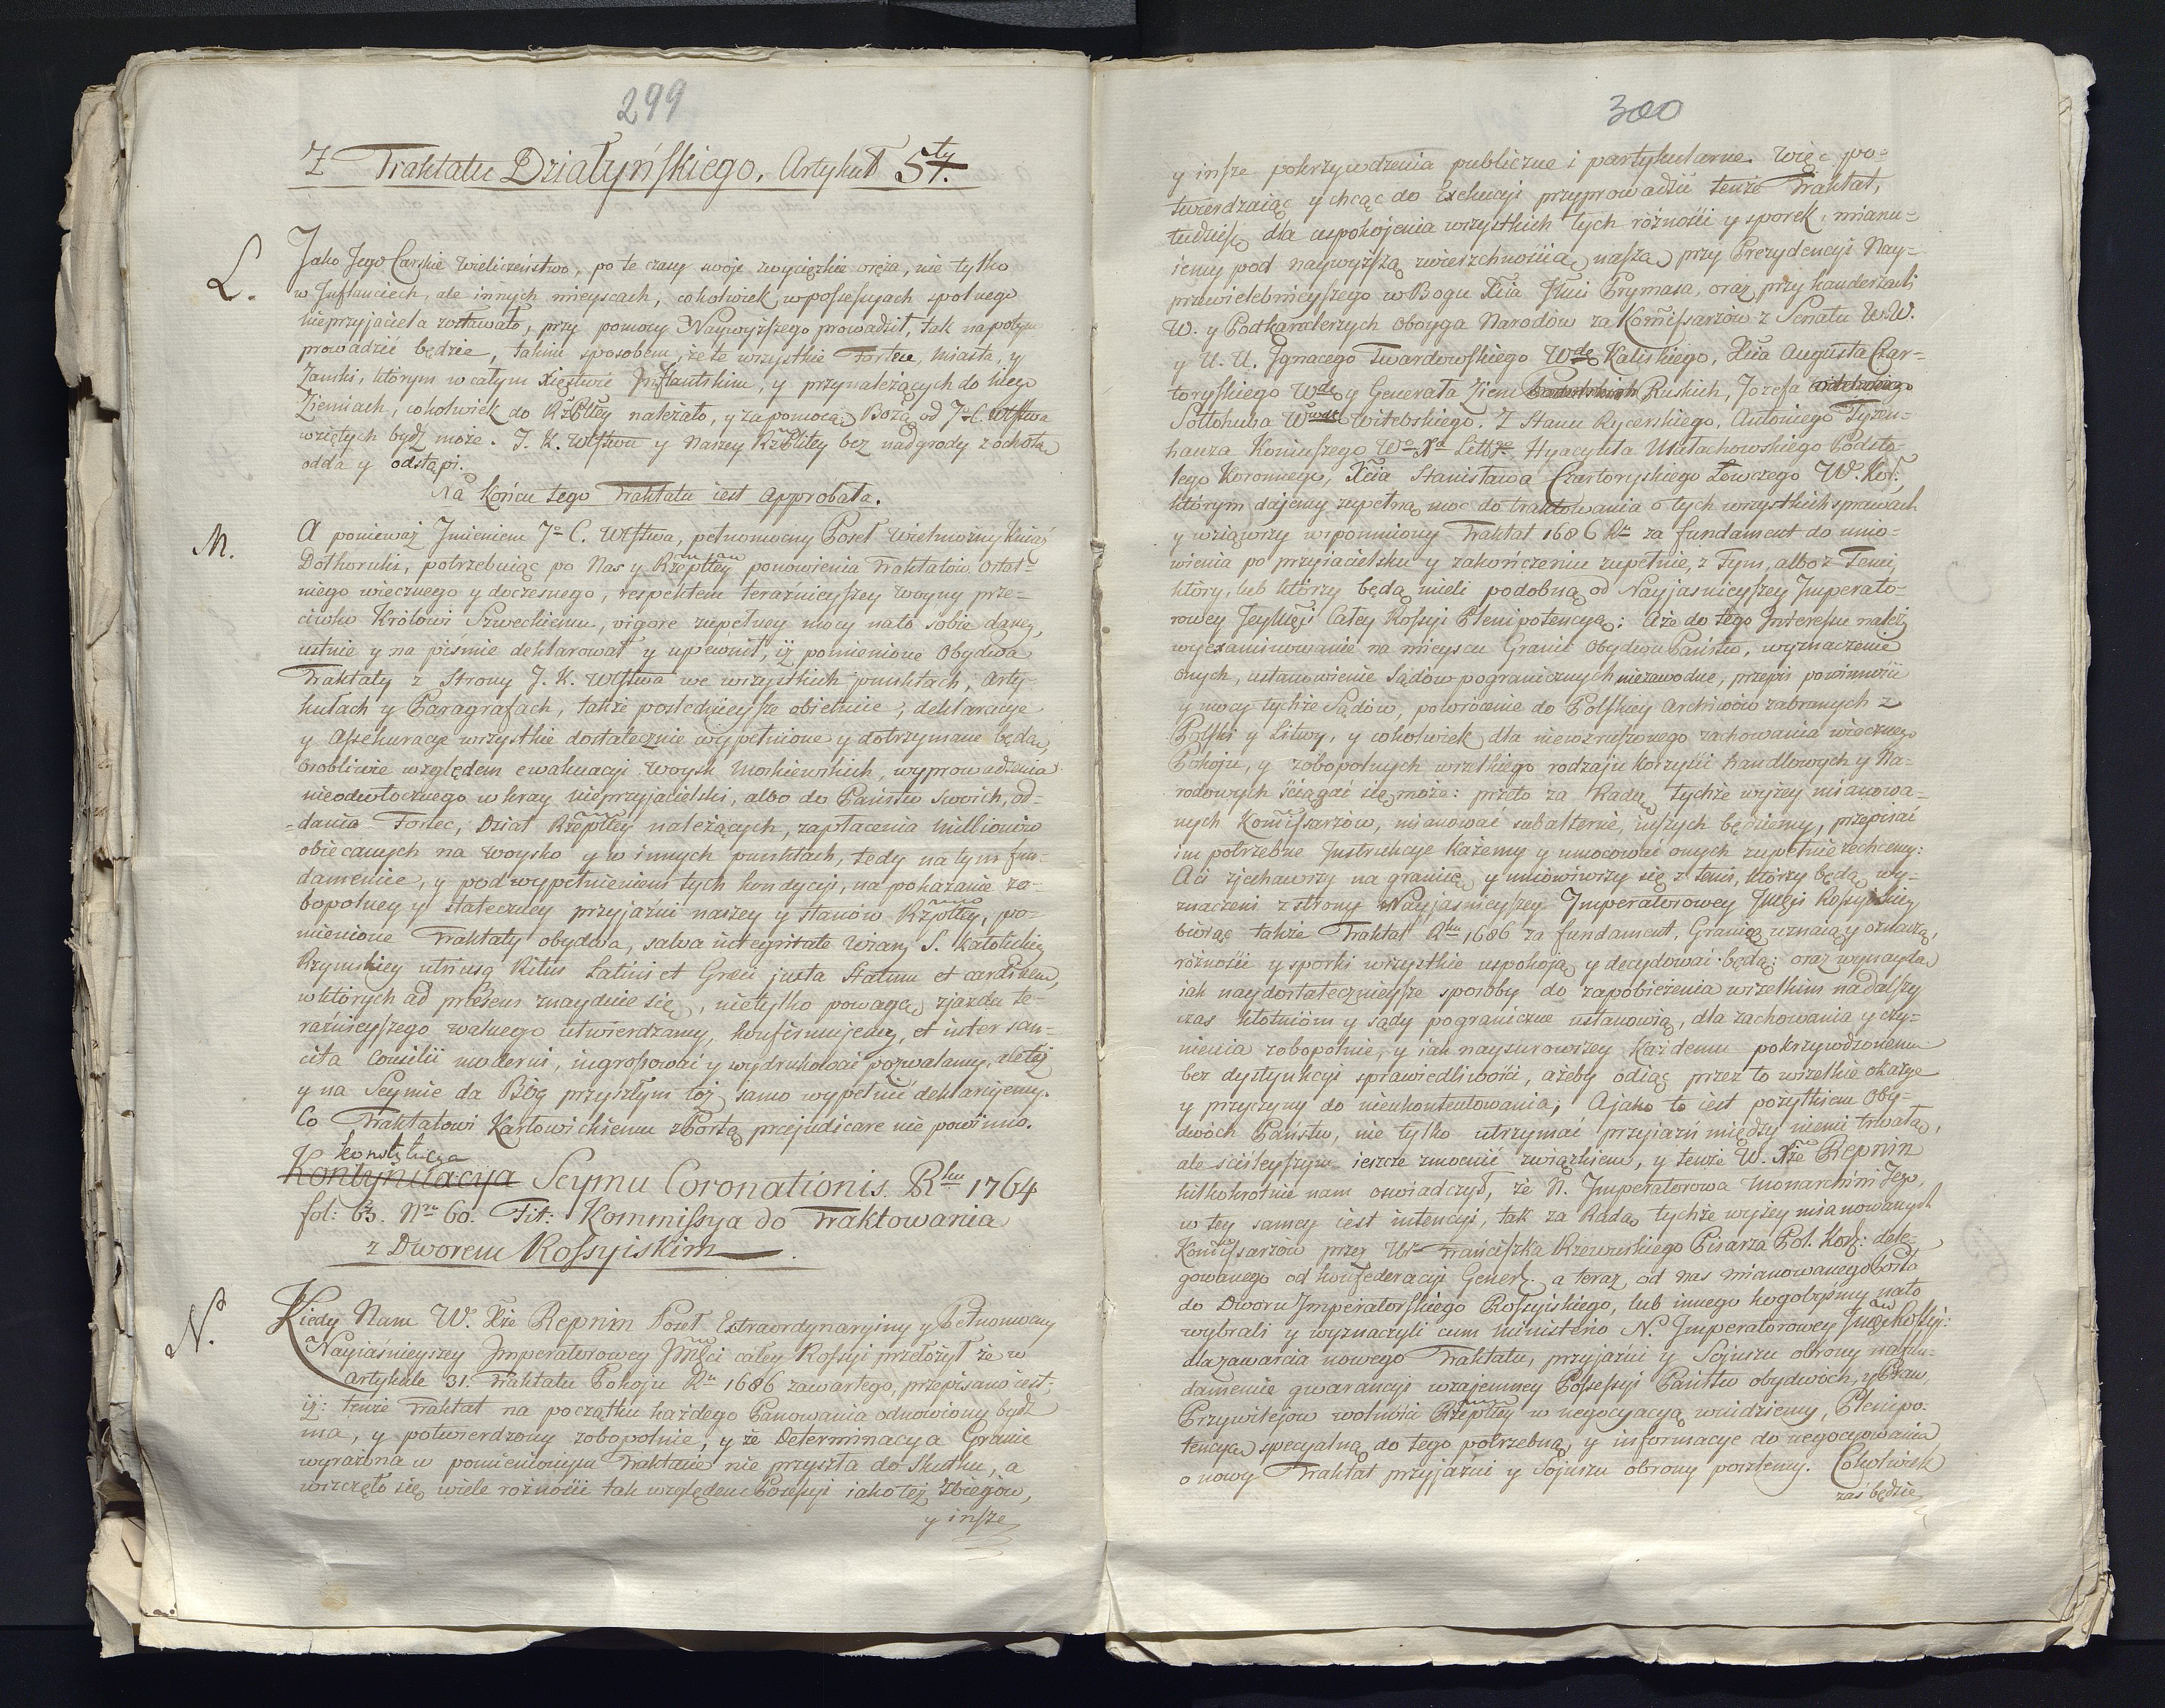 299
Z Traktatu Działyńskiego, Artykuł 5ty.
L.
Jako Jego Carskie Wieliczeństwo, po te czasy swoje zwycięzkie oręża, nie tylko
w Inflanciech, ale innych mieyscach, cokolwiek w possessyach spolnego
nieprzyjaciela zostawało, przy pomocy Naywyższego prowadził, tak napotym
prowadzić będzie, takim sposobem, że te wszystkie Fortece, Miasta, y
Zamki, którym w całym Xięstwie Inflantskim, y przynależących do niego
Ziemiach, cokolwiek do RzPltey należało, y za pomocą Bożą od Jo C. Wstwa
wziętych bydź może. J. K. Wstwu y Naszey RzPlitey bez nadgrody z ochotą
odda y odstąpi.
Na końcu tego Traktatu iest Approbata.
M.
A ponieważ Imieniem Jo C. Wstwa, pełnomocny Poseł Wielmożny Kniaź
Dothoruki, potrzebuiąc po Nas y Rzeptey ponowienia Traktatów Ostat-
niego wiecznego y doczesnego, respektem teraźnieyszey woyny prze-
ciwko Królowi Szweckiemu, vigore zupełney mocy na to sobie daney,
ustnie y na piśmie deklarował y upewnił, iż pomienione Obydwa
Traktaty z Strony J. K. Wstwa we wszystkich punktach, Arty-
kułach y Paragrafach, także poslednieysze obietnice, deklaracye
y Assekuracye wszystkie dostatecznie wypełnione y dotrzymane będą,
osobliwie względem ewakuacyi Woysk Moskiewskich, wyprowadzenia
nieodwłocznego w kray nieprzyjacielski, albo do Państw swoich, od-
=dania Fortec, Dział Rzeptey należących, zapłacenia Millionów
obiecanych na Woysko y w innych punktach, tedy na tym fun-
damencie, y pod wypełnieniem tych kondycyi, na pokazanie zo-
bopolney y stateczney przyjaźni naszey y Stanów Rzpltey, po-
mienione Traktaty obydwa, salva integritate Wiary S. Katolickiey
Rzymskiey utriusq Ritus Latini et Græci juxta Statum et cardinem,
w których ad præsens znayduie się, nietylko powagą zjazdu te-
raźnieyszego walnego utwierdzamy, konfirmujemy, et inter san-
cita Consilii moderni, ingrossować y wydrukować pozwalamy, ale też
y na Seymie da Bóg przyszłym toż samo wypełnić deklarujemy.
Co Traktatowi Karłowickiemu z Portą præjudicare nie powinno.
Konstytucya
Kontynuacya Seymu Coronationis Rku 1764
fol: 63. Nro 60. Tit: Kommissya do Traktowania
z Dworem Rossyiskim.
N.
Kiedy Nam W. Xże Repnin Poseł Extraordynaryiny y Pełnomocny
Nayiaśnieyszey Imperatorowey Jmści całey Rossyi przełożył że w
Artykule 31. Traktatu Pokoju Ru 1686 zawartego, przepisano iest,
iż: tenże Traktat na początku każdego Panowania odnowiony bydź
ma, y potwierdzony zobopolnie, y że Determinacya Granic
wyrażona w pomienionym Traktacie nie przyszła do skutku, a
wszczęło się wiele różności tak względem Possessyi iako też Zbiegów,
y insze
300
y insze pokrzywdzenia publiczne i partykularne. Więc po-
twierdzaiąc y chcąc do Exekucyi przyprowadzić tenże Traktat,
tudzież dla uspokojenia wszystkich tych różności y sporek, mianu-
iemy pod naywyższą zwierzchnością naszą przy Prezydencyi Nay-
przewielebnieyszego w Bogu Xcia Jmci Prymasa, oraz przy kanclerzach
W. y Podkanclerzych Oboyga Narodów za Komissarzów z Senatu W.W.
y U. U. Ignacego Twardowskiego Wdę Kaliskiego, Xcia Augusta Czar-
toryskiego Wdę y Generała Ziem Podolskich Ruskich, Jozefa
Sołłohuba Wwdę Witebskiego. Z Stanu Rycerskiego, Antoniego Tyzen-
hauza Koniuszego Wo Xa Littgo Hyacynta Małachowskiego Podsto-
lego Koronnego, Xcia Stanisława Czartoryskiego Łowczego W. Kor:,
którym dajemy zupełną moc do traktowania o tych wszystkich sprawach
y wziąwszy wspomniony Traktat 1686 Ru za fundament do umó-
wienia po przyiacielsku y zakończenia zupełnie, z Tym, albo z Temi,
który, lub którzy będą mieli podobną od Nayjasnieyszey Imperato-
rowey JeyMści Całey Rossyi Plenipotencyą: Aże do tego Interessu należy
wyexaminowanie na mieyscu Granic Obydwu Państw, wyznaczenie
onych, ustanowienie Sądów pogranicznych niezawodne, przepis powinności
y mocy tychże Sądów, powrócenie do Polskiey Archiwów zabranych z
Polski y Litwy, y cokolwiek dla niewzruszonego zachowania wiecznego
Pokoju, y zobopolnych wszelkiego rodzaju korzyści handlowych y Na-
rodowych ściągać się może: przeto za Radą tychże wyżey mianowa-
nych Komissarzów, mianować subalterne, inszych będziemy, przepisać
im potrzebne Instrukcye każemy y umocować onych zupełnie zechcemy:
Aci zjechawszy na granicę y umówiwszy się z temi, którzy będą wy-
znaczeni z strony Nayjasnieyszey Imperatorowey JMści Rossyiskiey
biorąc także Traktat Rku 1686 za fundament, Granicę uznaią y oznaczą,
różności y sporki wszystkie uspokoją y decydować będą: oraz wynaydą
iak naydostatecznieysze sposoby do zapobieżenia wszelkim nadalszy
czas kłótniom y sądy pograniczne ustanowią, dla zachowania y czy-
nienia zobopolnie, y iak naysurowszey każdemu pokrzywdzonemu
bez dystynkcyi sprawiedliwości, ażeby odiąć przez to wszelkie okazye
y przyczyny do nieukontentowania; A jako to iest pożytkiem Oby-
dwóch Państw, nie tylko utrzymać przyjaźń między niemi trwałą,
ale ściśleyszym ieszcze zmocnić związkiem, y tenże W. Xże Repnin
kilkokrotnie nam oswiadczył, że N. Imperatorowa Monarchini Jego,
w tey samey iest intencyi, tak za Radą tychże wyżey mianowanych
Komissarzów przez Ur Franciszka Rzewuskiego Pisarza Pol. Kor: dele-
gowanego od konfederacyi Generl. a teraz, od nas mianowanego Posła
do Dworu Imperatorskiego Rossyiskiego, lub innego kogobyśmy na to
wybrali y wyznaczyli cum ministerio N. Imperatorowey Jmści Rossyi:
dla zawarcia nowego Traktatu, przyjaźni y Sojuszu obrony na fun-
damencie gwarancyi wzajemney Possessyi Państw obydwóch, y Praw,
Przywilejów wolności Rzeptey w negocyacyą wnidziemy, Plenipo-
tencyą specyalną do tego potrzebną, y informacye do negocyowania
o nowy Traktat przyjaźni y Sojuszu obrony poszlemy. Cokolwiek
zaś będzie